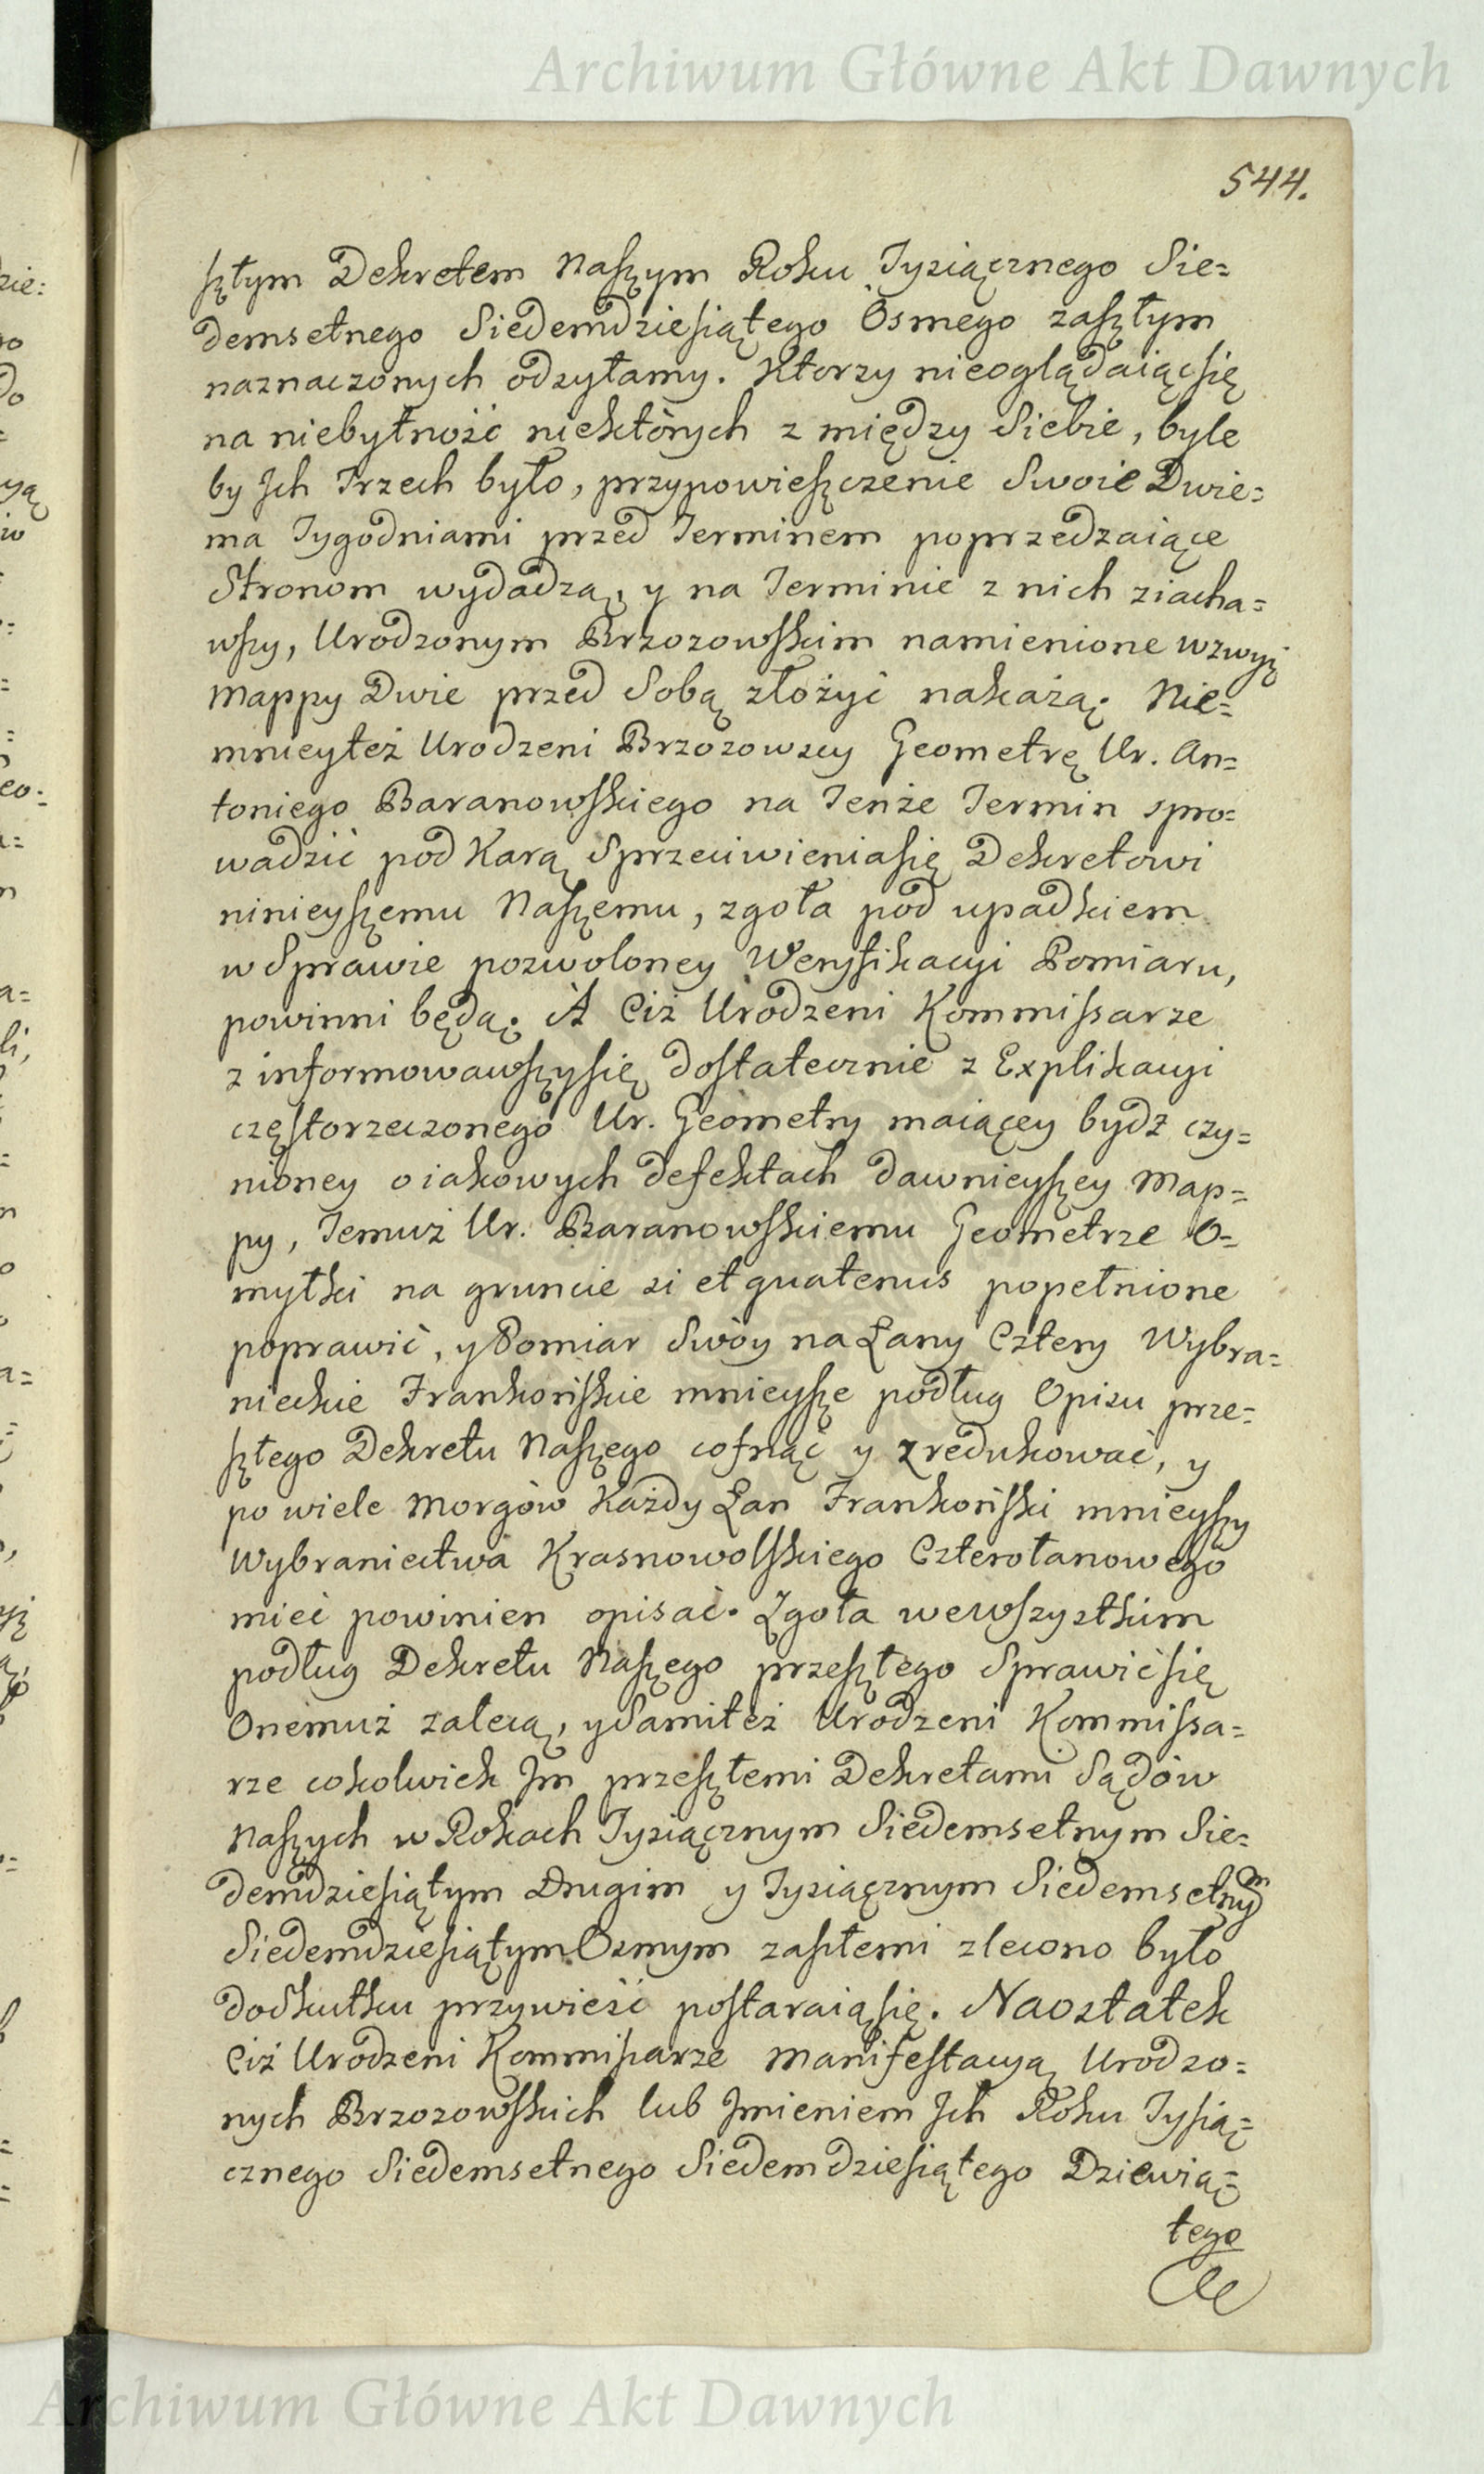 Archiwum Główne Akt Dawnych
544.
szłym Dekretem Naszym Roku Tysiącznego Sie=
demsetnego Siedemdziesiątego Osmego zaszłym
naznaczonych odsyłamy. Ktorzy nieoglądaiącsię
na niebytność niektórych z między Siebie, byle
by Jch Trzech było, przypowieszczenie Swoie Dwie=
ma Tygodniami przed Terminem poprzedzaiące
Stronom wydadzą, y na Terminie z nich ziacha=
wszy, Urodzonym Brzozowskim namienione wzwyż
Mappy Dwie przed Sobą złożyć nakażą; Nie=
mnieyteż Urodzeni Brzozowscy Geometrę Ur. An=
toniego Baranowskiego na Tenże Termin spro=
wadzić pod Karą Sprzeciwieniasię Dekretowi
ninieyszemu Naszemu, zgoła pod upadkiem
w Sprawie pozwoloney Weryfikacyi Pomiaru,
powinni będą; A Ciż Urodzeni Kommissarze
z informowawszysię dostatecznie z Explikacyi
częstorzeczonego Ur. Geometry maiącey bydź czy=
nioney o iakowych defektach dawnieyszey Map=
py, Temuż Ur. Baranowskiemu Geometrze O=
myłki na gruncie si et quatenus popełnione
poprawić, y Pomiar Swóy na Łany Cztery Wybra=
nieckie Frankońskie mnieysze podług Opisu prze=
szłego Dekretu Naszego cofnąć y zredukować, y
po wiele Morgów Każdy Łan Frankoński mnieyszy
Wybraniectwa Krasnowolskiego Czterołanowego
mieć powinien opisać. Zgoła wewszystkim
podług Dekretu Naszego przeszłego Sprawićsię
Onemuż zalecą, y Samiteż Urodzeni Kommissa=
rze cokolwiek Jm przeszłemi Dekretami Sądów
Naszych w Rokach Tysiącznym Siedemsetnym Sie=
demdziesiątym Drugim y Tysiącznym Siedemsetnym
Siedemdziesiątym Osmym zaszłemi zlecono było
doskutku przywieść postaraiąsię. Naostatek
Ciż Urodzeni Kommissarze Manifestacyą Urodzo=
nych Brzozowskich lub Jmieniem Jch Roku Tysią=
cznego Siedemsetnego Siedemdziesiątego Dziewią=
tego
Archiwum Główne Akt Dawnych